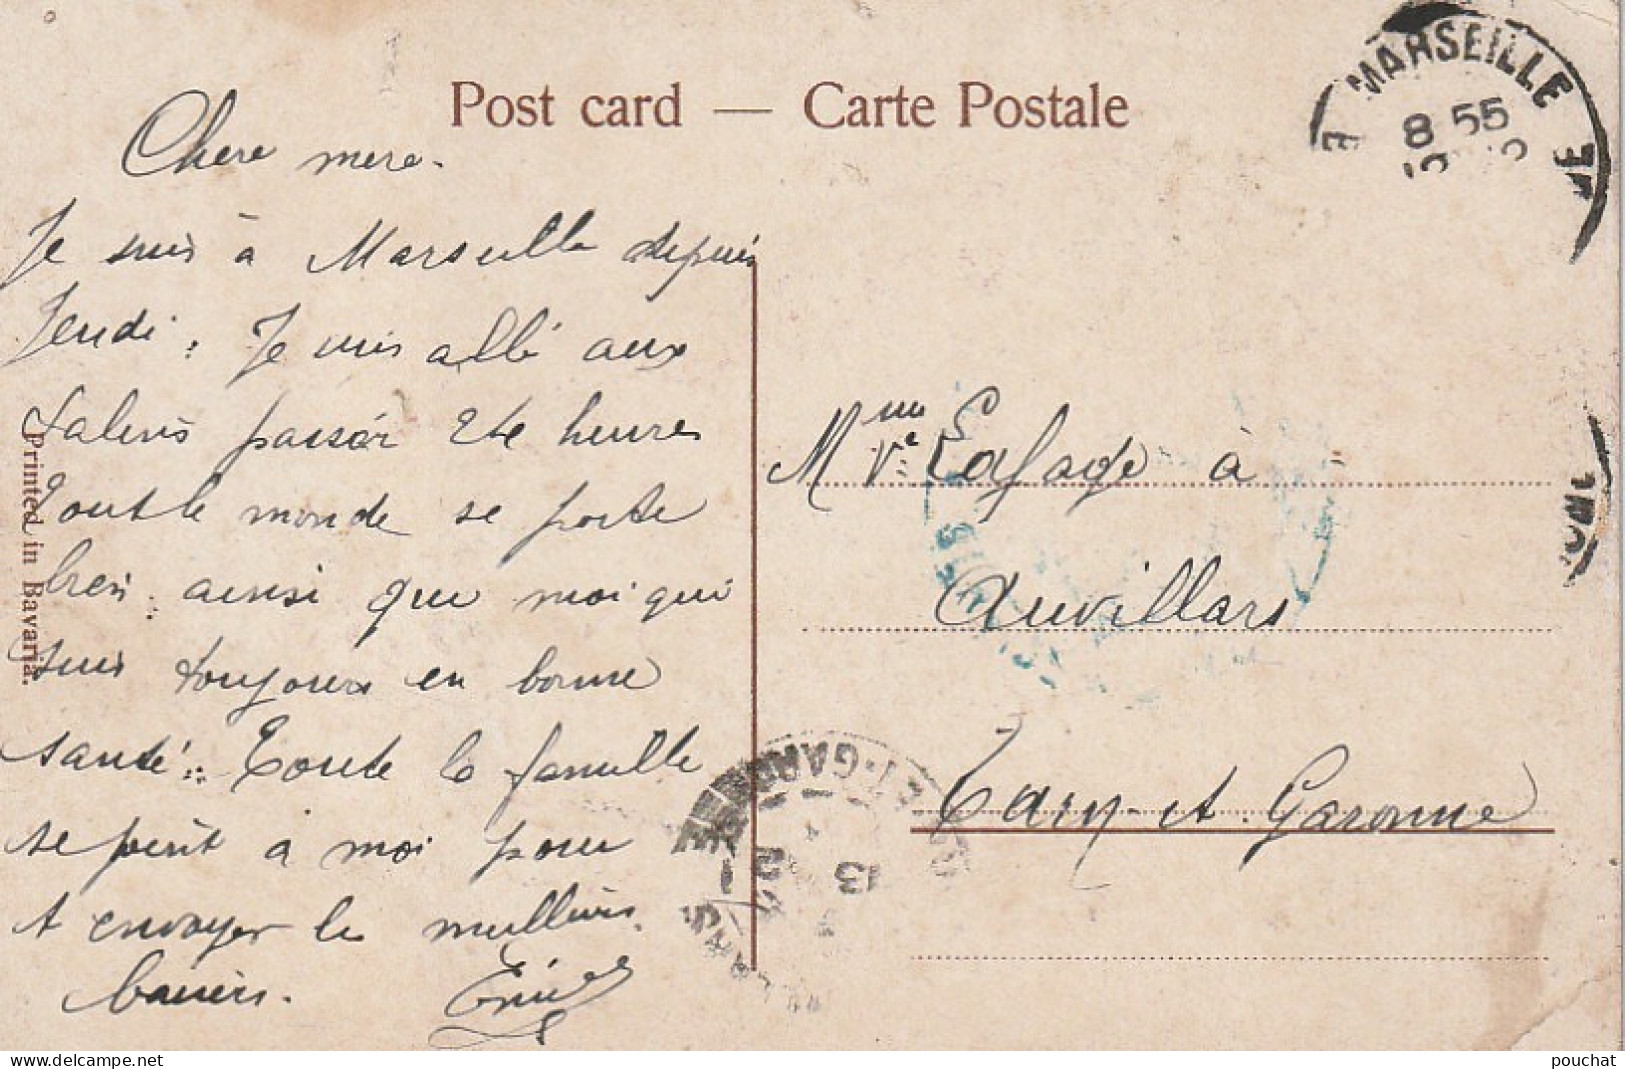 Post card — Carte Postale
MARSEILLE
8 55
Chere mere.
Je suis à Marseille depuis
Jeudi. Je suis allé aux
Salins passer 2 heures
Tout le monde se porte
bien ainsi que moi qui
suis toujours en bonne
santé. Toute la famille
se joint à moi pour
t envoyer les meilleurs
baisers.
Mme Vve Lafage à
Auvillars
Tarn-et-Garonne
Printed in Bavaria.
T-GAR
13
www.delcampe.net
pouchat